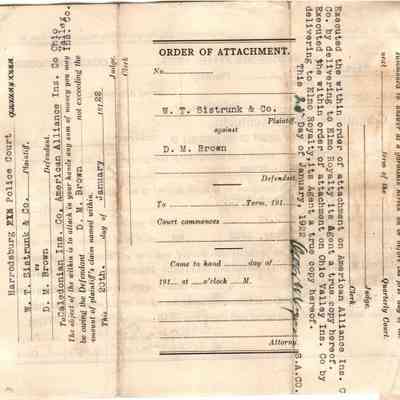 Harrodsburg Police Court
W. T. Sistrunk & Co. Plaintiff,
vs
D. M. Brown Defendant.
To Caledonian Ins. Co. American Alliance Ins. Co Ohio Valley Ins. Co.
The object of the within is to attach in your hands any sum of money you may
be owing the Defendant D. M. Brown not exceeding the
amount of plaintiff's claim named within.
This 20th. day of January 1922
Judge.
Clerk
ORDER OF ATTACHMENT.
No.
W. T. Sistrunk & Co.
Plaintiff
against
D. M. Brown
Defendant
To Term, 191
Court commences
Came to hand day of
191 at o'clock M.
Attorney
Executed the within order of attachment on American Alliance Ins. C
Co. by delivering to Elmo Royalty its Agent a true copy hereof.
Executed the within order of attachment on Ohio Valley Ins. Co by
delivering to Elmo Royalty, its Agent a true copy hereof.
This Day of January, 1922
S.A.CO.
Clerk.
Judge.
term of the
Quarterly Court.